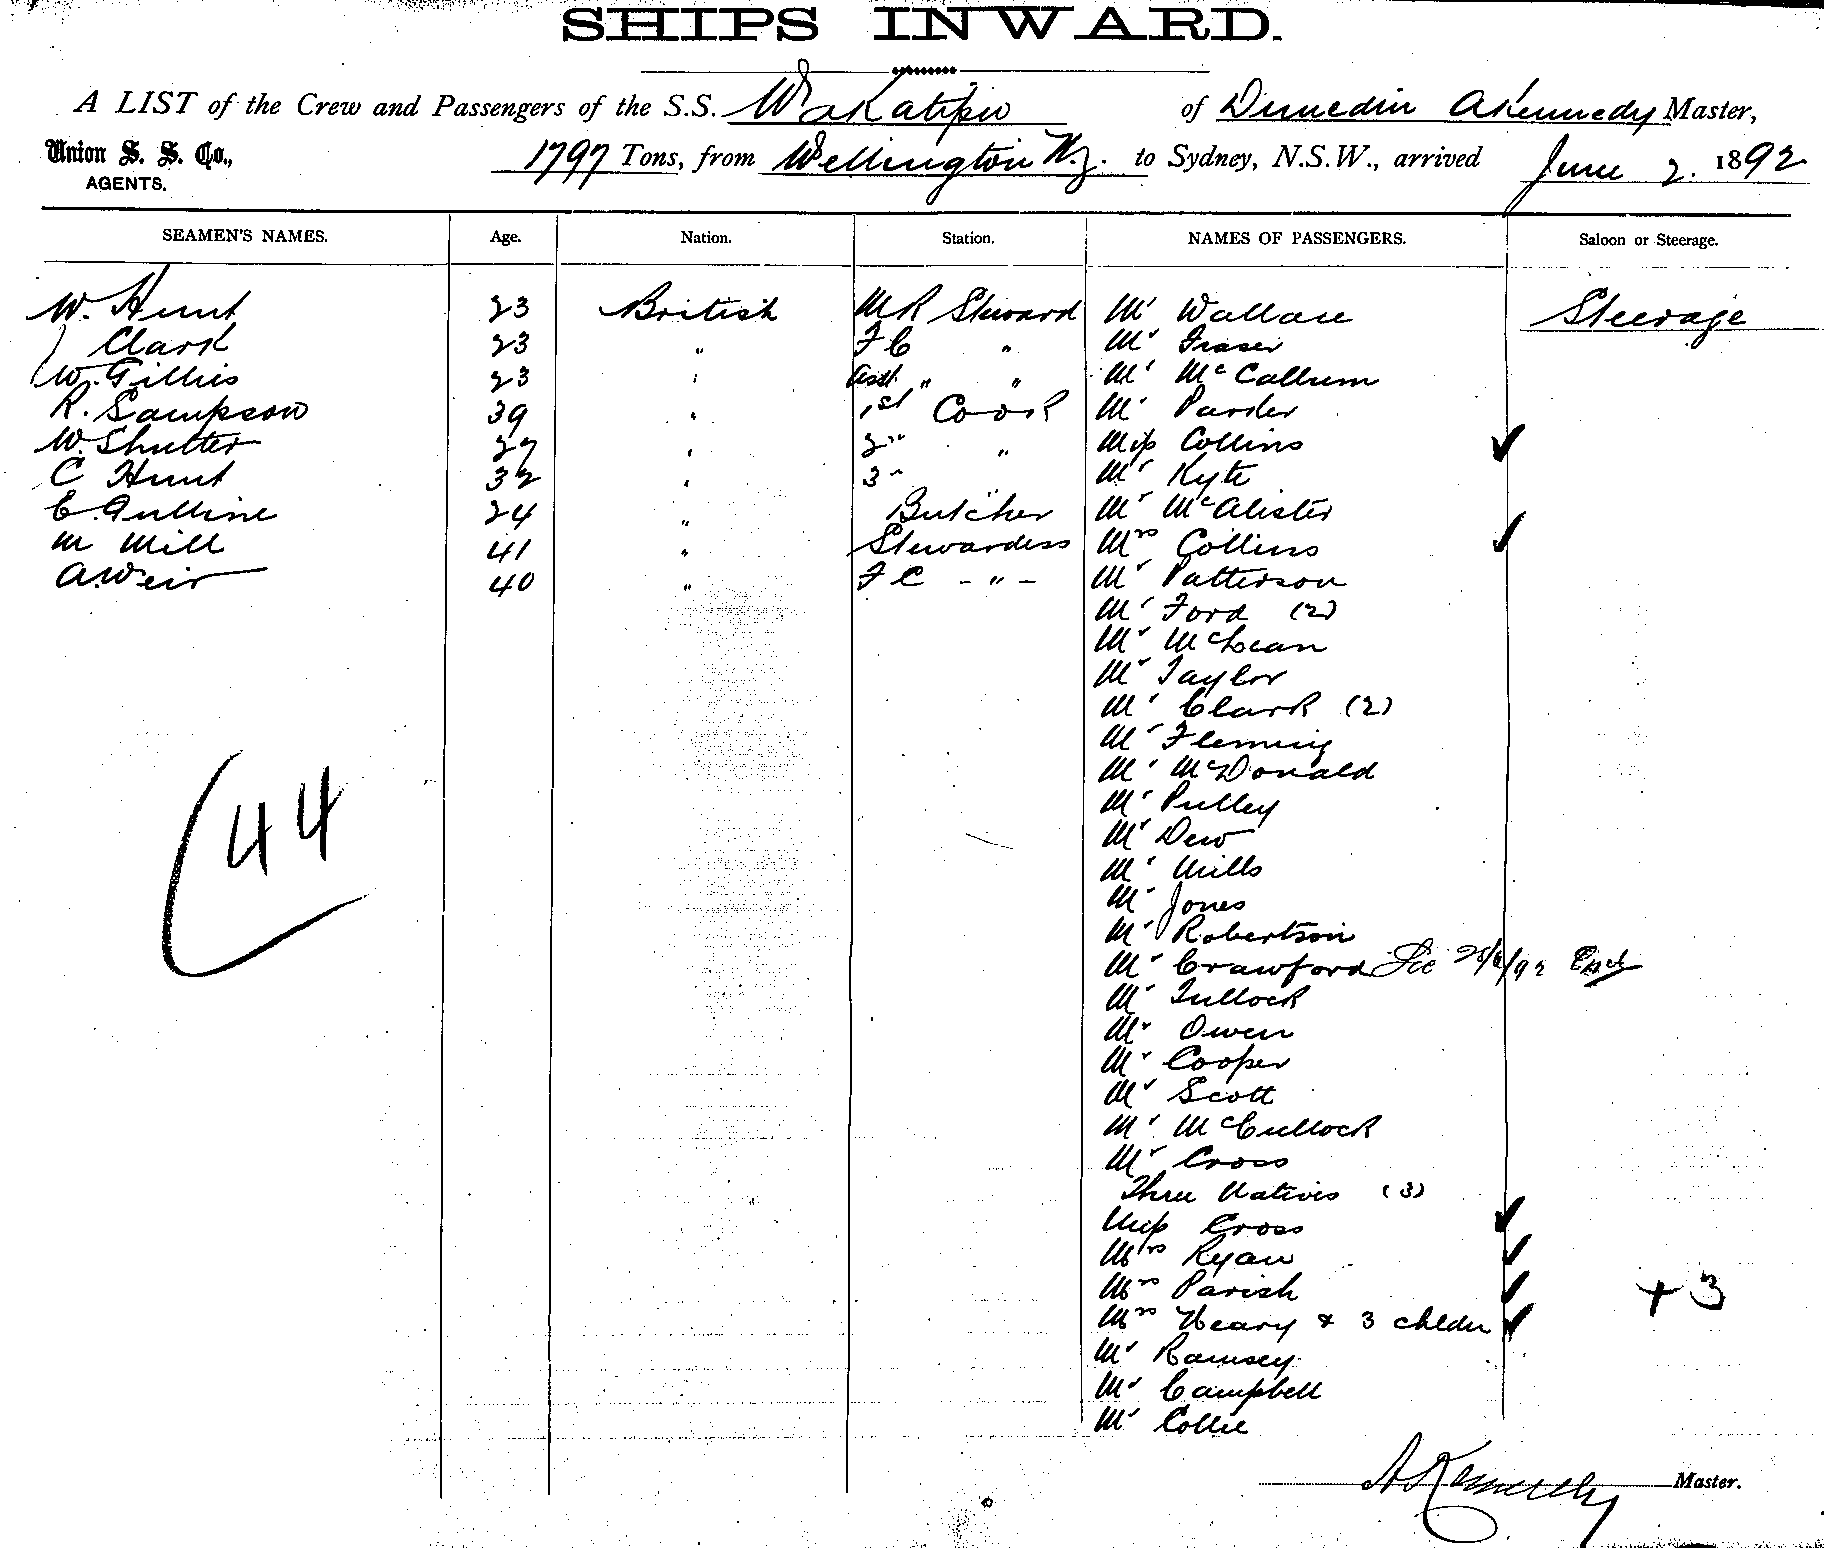 SHIPS INWARD.
A LIST of the Crew and Passengers of the S.S. Wakatipu of Dunedin AKennedy Master,
Union S. S. Co., 1797 Tons, from Wellington N.Z. to Sydney, N.S.W., arrived June 2. 1892
AGENTS.
SEAMEN'S NAMES. Age. Nation. Station. NAMES OF PASSENGERS. Saloon or Steerage.
W. Hunt 23 British M R Steward Mr Wallace Steerage
J Clark 23 " F C " Mr Fraser
W. Gillies 23 " Asst " " Mr McCallum
R. Sampson 39 " 1st Cook Mr Parder
W. Shutter 27 " 2" " Miss Collins ✓
C Hunt 32 " 3" " Mr Kyte
C. Gulline 24 " Butcher Mr McAlister
M Mill 41 " Stewardess Mrs Collins ✓
A. Weir 40 " F C - " - Mr Patterson
Mr Ford (2)
Mr McLean
Mr Taylor
Mr Clark (2)
Mr Fleming
Mr McDonald
Mr Pulley
44
Mr Dew
Mr Mills
Mr Jones
Mr Robertson
Mr Crawford 92
Mr Tullock
Mr Owen
Mr Cooper
Mr Scott
Mr McCullock
Mr Cross
Three Natives (3)
Miss Cross ✓
Mrs Ryan ✓
Mrs Parish ✓ + 3
Mrs Heary & 3 childn ✓
Mr Ramsey
Mr Campbell
Mr Collie
AKennedy Master.